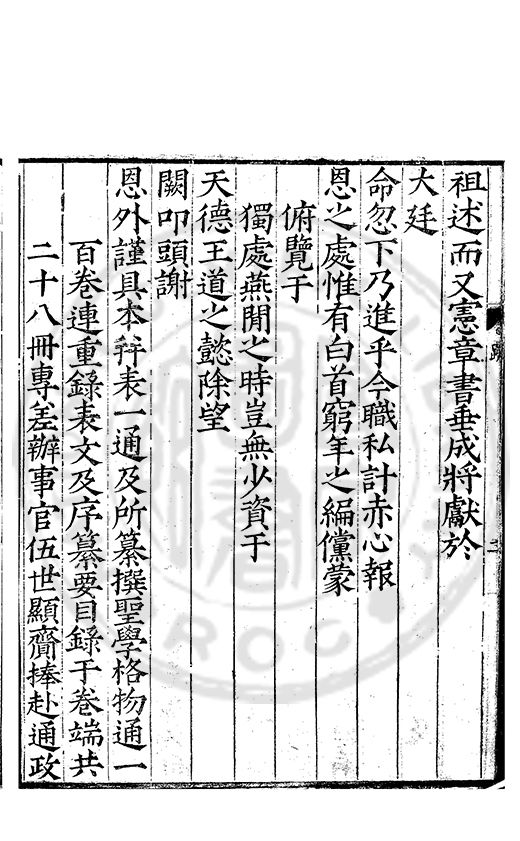 祖述而又憲章書垂成將獻於
大廷
命忽下乃進乎今職私計赤心報
恩之處惟有白首窮年之編儻蒙
俯覽于
獨處燕閒之時豈無少資于
天德王道之懿除望
闕叩頭謝
恩外謹具本并表一通及所纂撰聖學格物通一
百卷連重錄表文及序纂要目錄于卷端共
二十八冊專差辦事官伍世顯齎捧赴通政